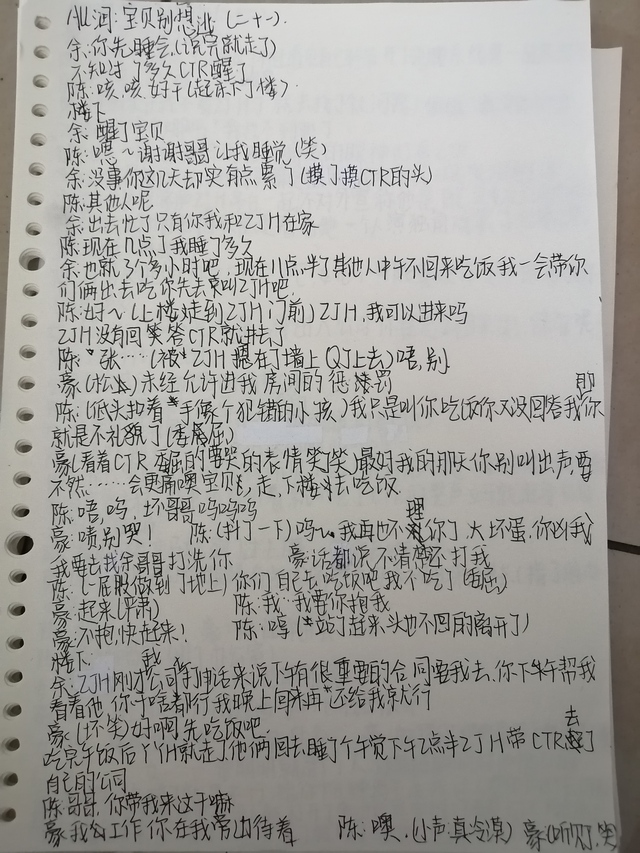 ALL润:宝贝别想逃(二十一).
余:你先睡会,(说完就走了)
不知过了多久CTR醒了
陈:咳,咳好干(起床下了楼)
楼下
余:醒了宝贝
陈:嗯~谢谢哥哥让我睡觉(笑)
余:没事你这几天却实有点累了(摸了摸CTR的头)
陈:其他人呢
余:出去忙了只有你我和ZJH在家
陈:现在几点了我睡了多久
余:也就3个多小时吧,现在11点半了其他人中午不回来吃饭我一会带你
们俩出去吃你先去叫ZJH吧.
陈:好~(上楼走到ZJH门前)ZJH,我可以进来吗
ZJH没有回答CTR就进去了
陈:张……(被ZJH摁在了墙上Q了上去)唔,别
豪(松)未经允许进我房间的惩罚
陈:(低头抠着手像个犯错的小孩)我只是叫你吃饭你又没回答我你
就是不礼貌了(委屈)
豪(看着CTR委屈的要哭的表情笑了笑)最好我的那天你别叫出声,要
不然……会更痛噢宝贝,走,下楼去吃饭.
陈:唔,呜,坏哥哥呜呜呜
豪:啧,别哭! 陈:(打了一下)呜~我再也不理你了,大坏蛋,你凶我
我要去找余哥哥打洗你 豪:话都说不清楚还打我
陈:(一屁股做到了地上)你们自己去吃饭吧我不吃了(委屈)
豪:起来(严肃) 陈:我…我要你抱我
豪:不抱,快起来! 陈:哼(站了起来头也不回的离开了)
楼下.
余:ZJH刚才公司打电话来说下午有很重要的合同要我去,你下午帮我
看着他,你干啥都行我晚上回来再还给我就行
豪(坏笑)好啊先吃饭吧.
吃完午饭后丫丫H就走了他俩回去睡了个午觉下午2点半ZJH带CTR去了
自己的公司
陈:哥哥,你带我来这干嘛
豪:我工作你在我旁边待着 陈:噢.(小声:真冷漠) 豪(听见了,笑